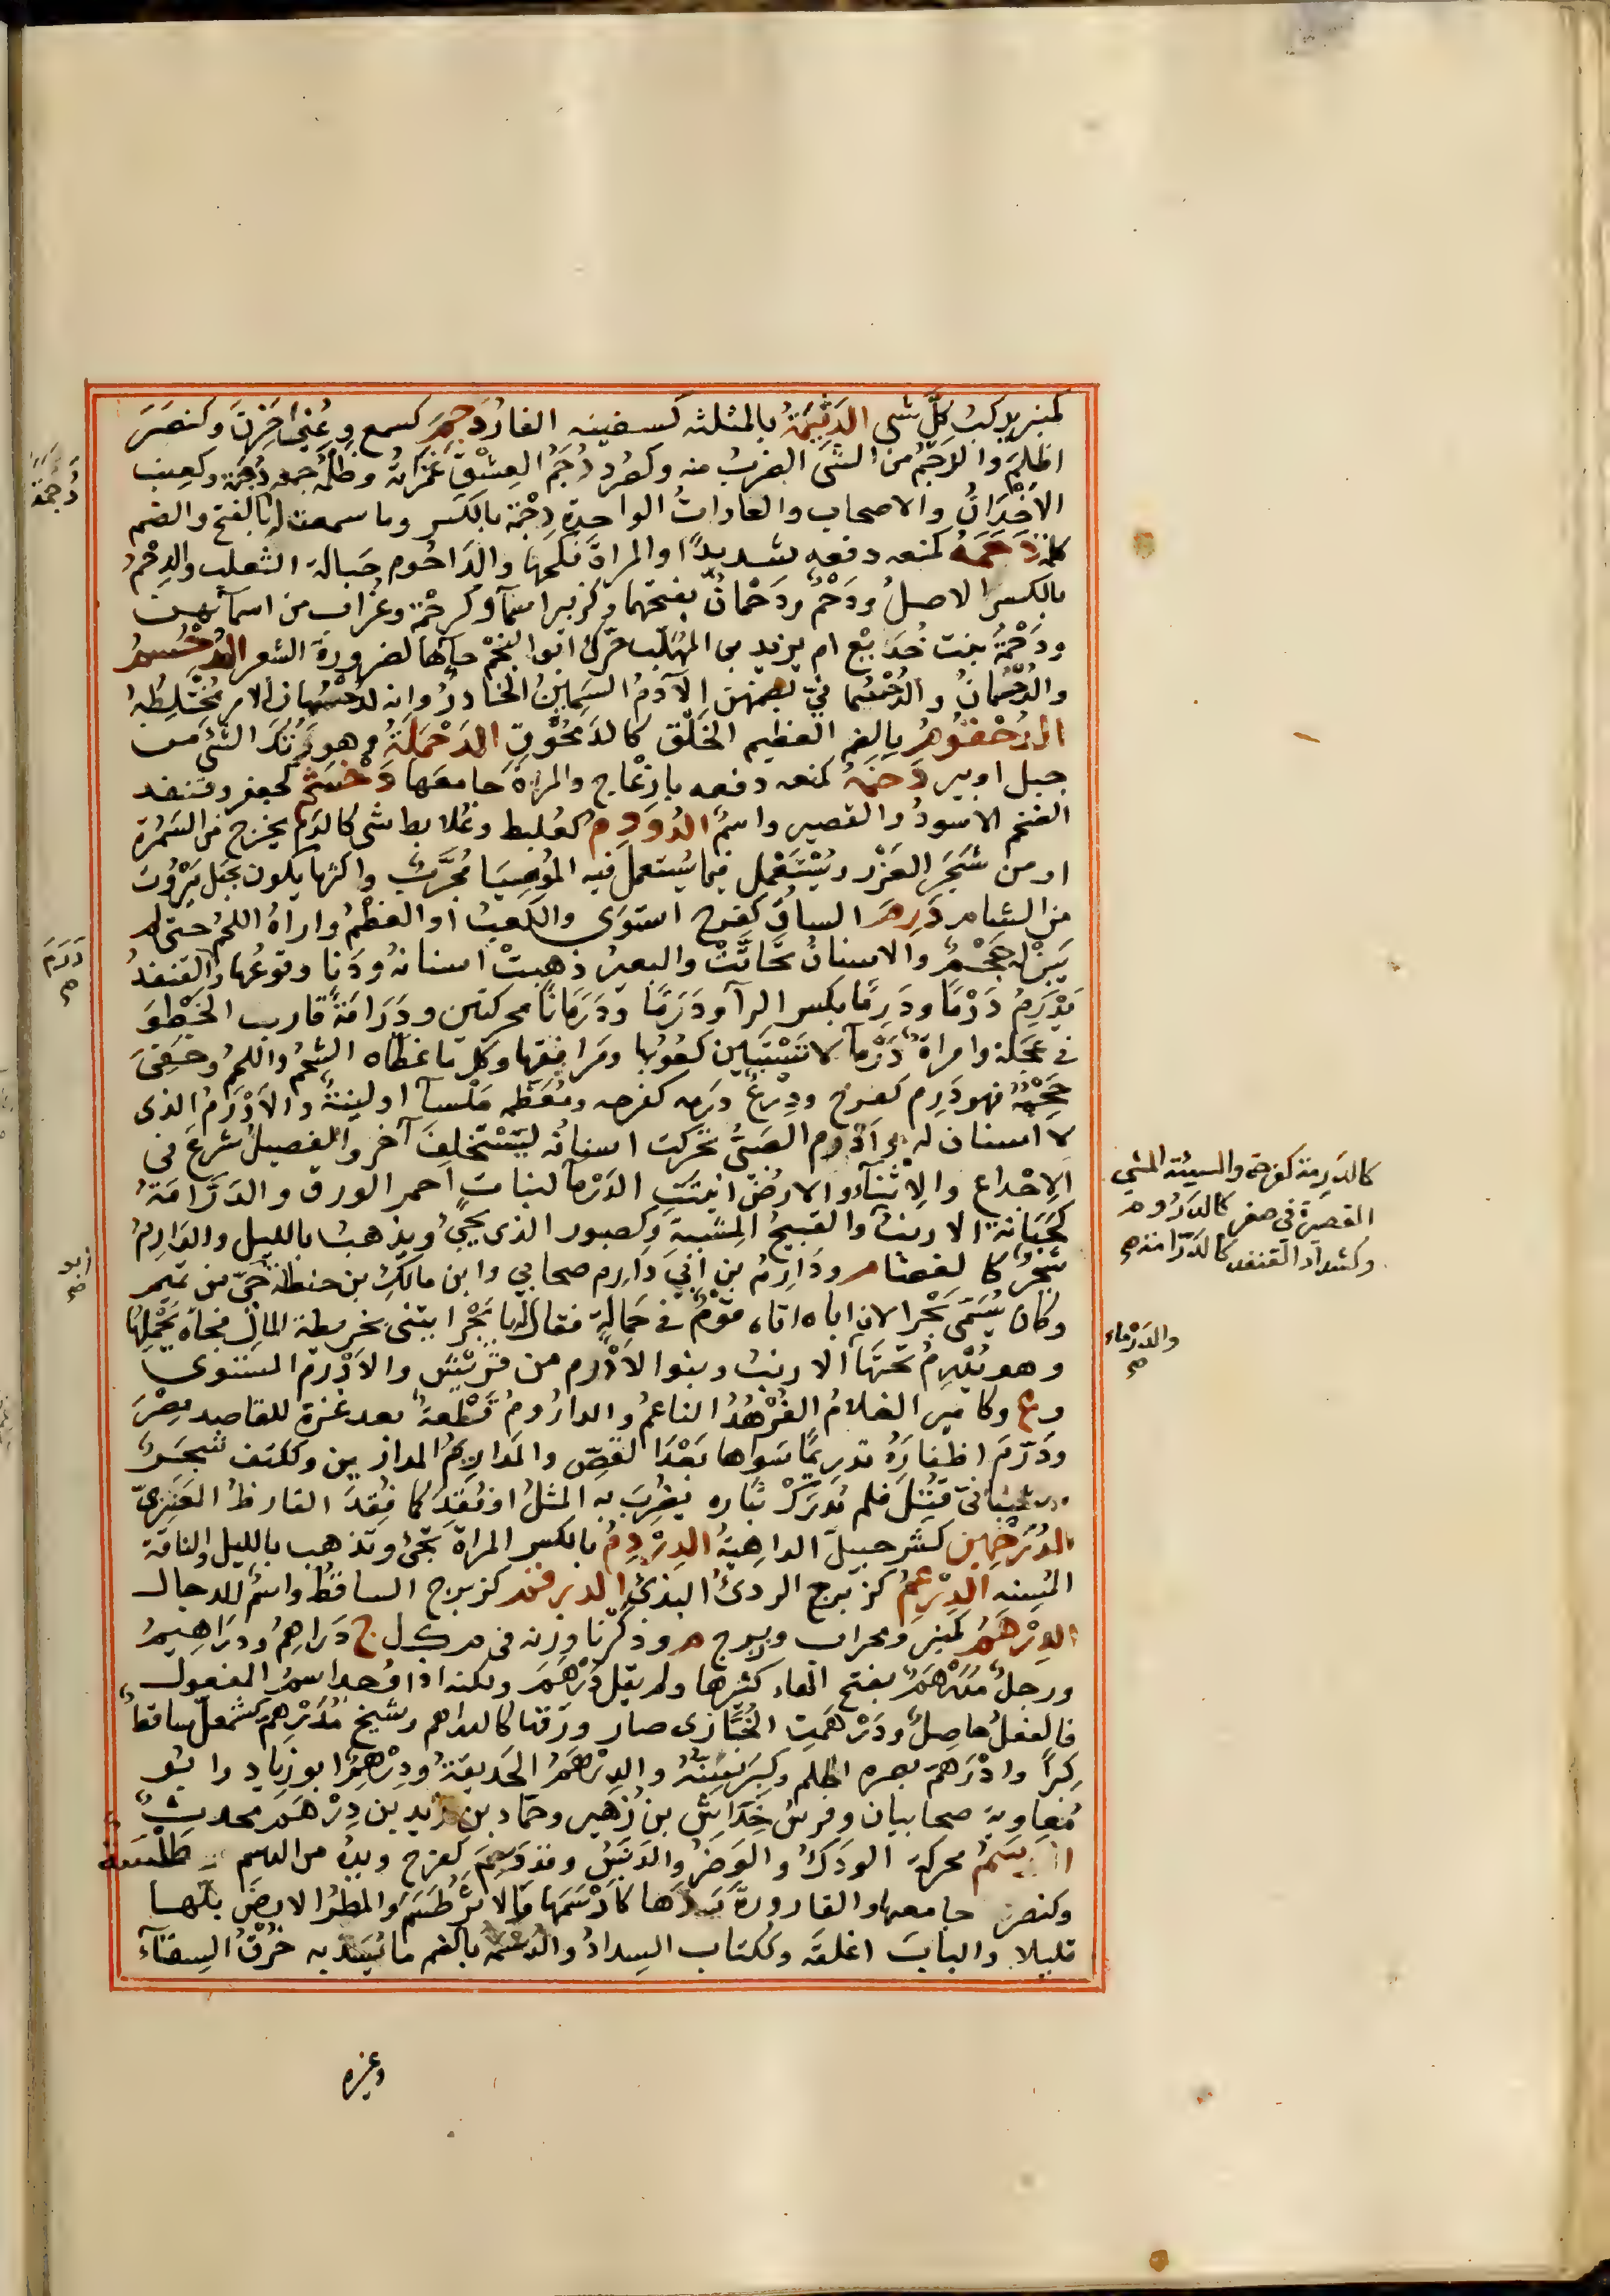 كمنبر يركب كلَّ شى الدَثِيمَةُ بالمثلثه كسفينه الفارُ دَجِمَ كسمع وعُنِىَ حَزِنَ وكنصَرَ
اظلم والدَجْمُ من الشئ الضربُ منه وكصُرَد دُجَمُ العِشْقِ غَمَراتُهُ وظُلَمُهُ جمع دُجْمَة وكعِنب
الاَخْدَانُ والاصحاب والعاداتُ الواحدةِ دِجْمَة بالكسر وما سمعت له بالفتح والضم
كلمة دَحَمَهُ كمنعه دفعه شديدًا والمراةَ نكحها والدَاحُوم حِبالة الثعلب والدِحْمُ
بالكسر الاصلُ ودَحْمٌ ودَحْمَانُ بفتحهما وكزبير اسمآ وكرحْمَة وغُراب من اسمآئهن
ودَحْمَةُ بنت خُدَيْج ام يزيد بن المهَلّب حرّك ابوا النجْم حآءها لضرورة الشعر الدُحْسُمُ
والدُحْسُمانُ والدُحْسُمانيّ بضمهن الآدَمُ السَمِينُ الحَادرُ وانه لدُحْسُمان الامر مُخْتَلِطُهُ
الدُحْقُوم بالضم العظيم الخَلْق كالدُمْحُوقِ الدَحْمَلَةُ هو دَهْوَرَتُكَ الشئ من
جبل او بير دَخَمَهُ كمنعه دفعه بازْعاج والمراةَ جامعها دَخْشَمٌ كجعفر وقنفد
الضخم الاسودُ والقصير واسمٌ الدُوَدِمُ كعُلَبِط وعُلابط شى كالدَم يخرج من السَمُرة
او من شَجَرِ العَزْر ويُسْتَعْمَل فيما يُستعمل فيه المُومِيَا مُجَرَّب واكثرها يكون بجَبَل بَيْرُوت
من الشام دَرِمَ الساق كفرح استوى والكعبُ او العظمُ واراهُ اللحمُ حتى لم
يَبِنْ له حَجْمٌ والاسنانُ تحَاتَّتْ والبعيرُ ذهبتْ اسنانهُ ودَنا وقوعُها والقنفدُ
يَدْرِمُ دَرْمًا ودَرِمًا بكسر الرآ ودَرَمًا ودَرَمانًا محركتين ودَرَامَةً قارب الخَطْوَ
فى عَجَلة وامراة دَرْمآ لا تَسْتَبين كُعُوبُها ومَرافِقها وكل ما غطاه الشحمُ واللحمُ وخَفِىَ
حَجْمُهُ فهو دَرِم كفرح ودِرْعٌ درمه كفرحه ومُعَظَمه مَلْسآ او لينةٌ والاَدْرَمُ الذى
لا اسنان له وادرم الصَبىُّ تحركت اسنانُه ليَسْتَخلِفَ آخر والفصيلُ شرع فى
الاجْداع والاِثْنآءِ والارضُ انبتَتِ الدَرْمآ لنبات احمر الورق والدَرَّامَةُ
كجَبّانة الارنبُ والقبيحُ المِشْيةِ وكصبور الذى يجئ ويذهبُ بالليل والدَارِمُ
شجرٌ كالغضا م ودَارِمُ بن ابِى دَارِم صحابي وابن مالكِ بن حنطلة حَىّ من تميم
وكان يُسَمّى بَحْرا لان اباه اتاه قومٌ فى حَمالةٍ فقال له يا بَحْرُ ايتنى بخريطة المال فجاه يَحْمِلُها
وهو يَدْرِمُ تحتَها الارنبُ وبنوا الاَدْرَم من قريْش والاَدْرَمُ المستوى
وع وكامير الغلامُ الفُرْهُدُ الناعمُ والدارُومُ قَلْعةٌ بعد غزة للقاصد مِصْرَ
ودَرّمَ اظفارَهُ تدريمًا سَواها بَعْدَ القَصّ والمَدارِيمُ المدارين وككتف شجَرٌ
وشيبانىّ قُتِلَ فلم يُدرَكْ بثاره فضُرِبَ به المثلُ او فُقِدَ كما فُقِدَ القارظُ العَنَزِىّ
الدُرَخْمِين كشرحبيل الداهيةُ الدِرْدِمُ بالكسر المراة تجئ وتذهب بالليل والناقة
المُسِنه الدِرْعِمُ كزبرج الردئُ البذئُ الدِرفَمُ كزبرج الساقطُ واسمٌ للدجال
الدِرْهَمُ كمنبر ومحراب وزبرج م وذكرْنا وزنه فى م ك ك ج دَراهِمُ ودرَاهِيمُ
ورجلٌ مُدَرْهَمٌ بفتح الهاء كثيرها ولم يقل دُرْهِمَ ولكنه اذا وُجد اسمُ المفعول
فالفعلُ حاصِلٌ ودَرْهَمَتِ الخُبّازى صار ورَقُها كالدراهم وشيخٌ مُدْرَهِمٌ كمشمعلّ ساقط
كِبَرًا وادْرَهَمَّ بصره اظلم وكَبِرَتْ سِنُّهُ والدِرْهَمُ الحَديقةُ ودِرْهَمٌ ابو زياد وابو
مُعاوية صحابيان وفرسُ خِدَاش بن زُهَير وحمّاد بن زيد بن دِرْهَم محدث
الدَسَمُ محركة الودَكُ والوَضَرُ والدَنَسُ وقد دَسِمَ كفرح ويدُهُ من الدسم طلسة
وكنصر جامعها والقارورةَ سَدَّها كادْسَمَها والاثرُ طَسَمَ والمطرُ الارضَ بلها
قليلا والبابَ اغلقَه وككتاب السِدادُ والدُسْمة بالضم ما يُسَدّ به خُرْقُ السِقآءُ
وغيره
دُجْمَة
دَرَمَ
صح
زيد
صح
كالدَرِمة كفرحة والسيئة المشي
القصيرة في صغر كالدَرُوم
وكشداد القنفد كالدَرّامة صح
والدَرْماء
صح